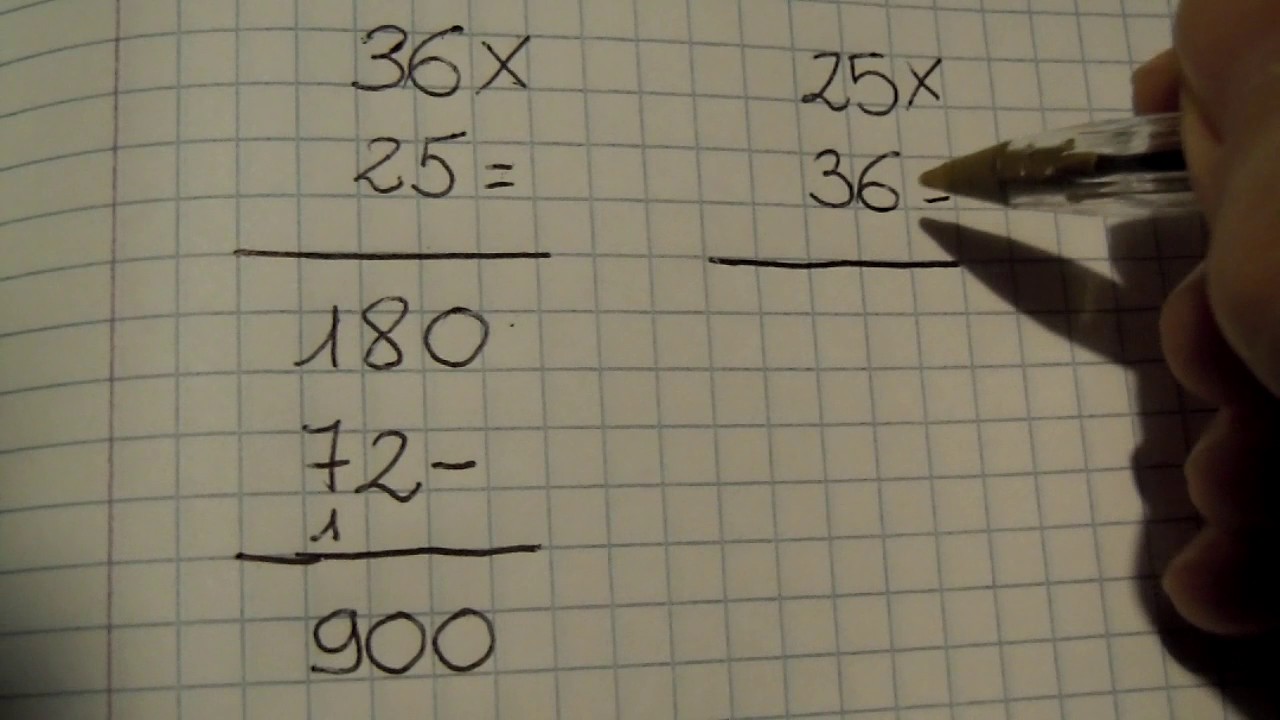 36x
25=
180
72-
1
900
25x
36=